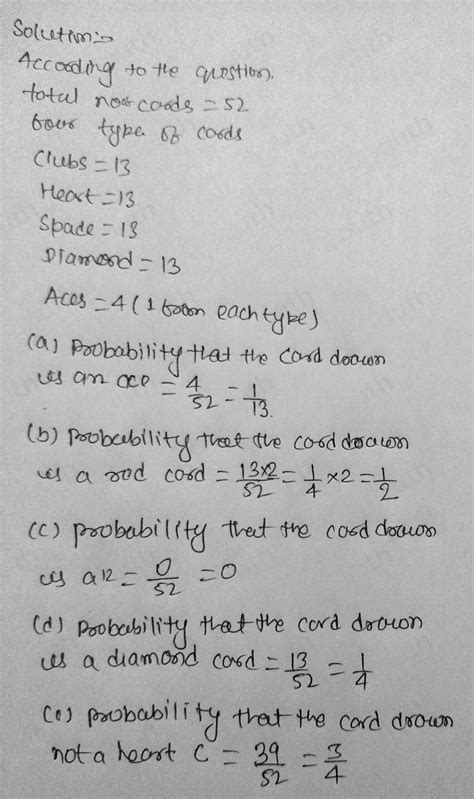 Solution:-
According to the question.
total no of cards = 52
four type of cards
Clubs = 13
Heart = 13
Spade = 13
Diamond = 13
Aces = 4 (1 from each type)
(a) Probability that the card drawn
is an ace = 4/52 = 1/13.
(b) probability that the card drawn
is a red card = 13×2/52 = 1/4 × 2 = 1/2
(c) probability that the card drawn
is a 12 = 0/52 = 0
(d) probability that the card drawn
is a diamond card = 13/52 = 1/4
(e) probability that the card drawn
not a heart C = 39/52 = 3/4